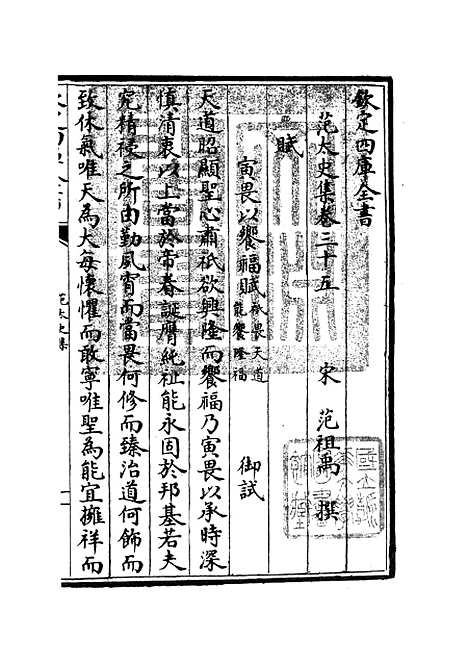 欽定四庫全書
范太史集卷三十五
宋 范祖禹 撰
賦
寅畏以饗福賦 祗畏天道能饗隆福 御試
天道昭顯聖心肅祗欲興隆而饗福乃寅畏以承時深
慎清衷以上當於帝眷誕膺純祉能永固於邦基若夫
究精祲之所由勤夙宵而當畏何修而臻治道何飾而
致休氣唯天為大每懷懼而敢寧唯聖為能宜擁祥而
范太史集